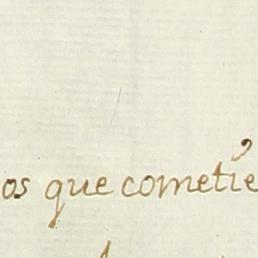 os que cometie